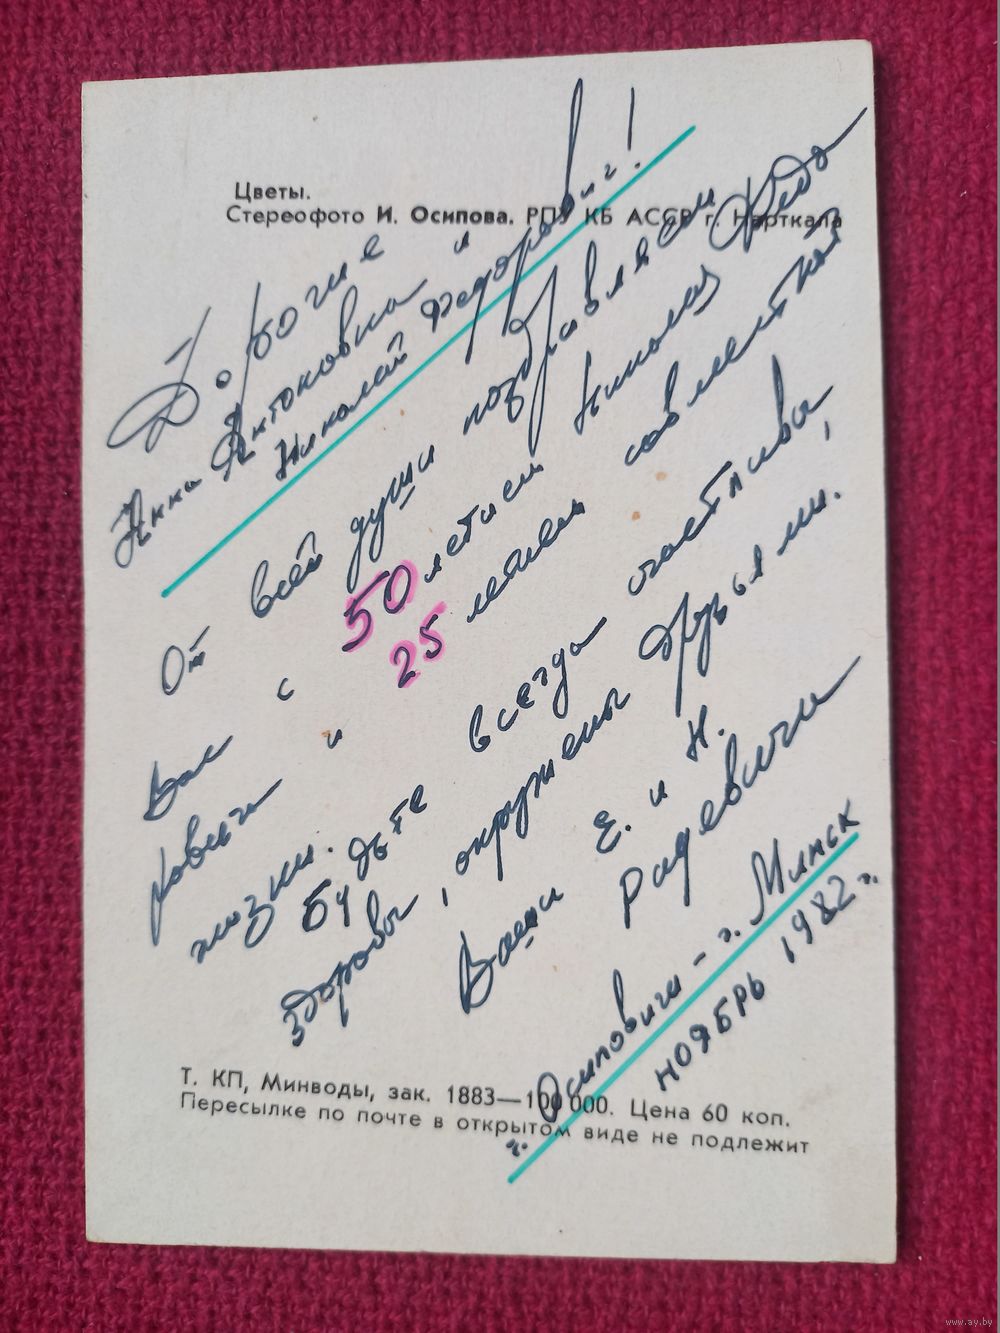 Цветы.
Стереофото И. Осипова. РПУ КБ АССР г. Нарткала
Дорогие
Нина Антоновна и
Николай Федорович!
От всей души поздравляем
Вас с 50 летием Николая Федо
ровича и 25 летием совместной
жизни.
Будьте всегда счастливы,
здоровы, окружены друзьями.
Ваши Е. и Н.
Радевичи
г. Осиповичи - г. Минск
НОЯБРЬ 1982 г.
Т. КП, Минводы, зак. 1883—100 000. Цена 60 коп.
Пересылке по почте в открытом виде не подлежит
www.ay.by